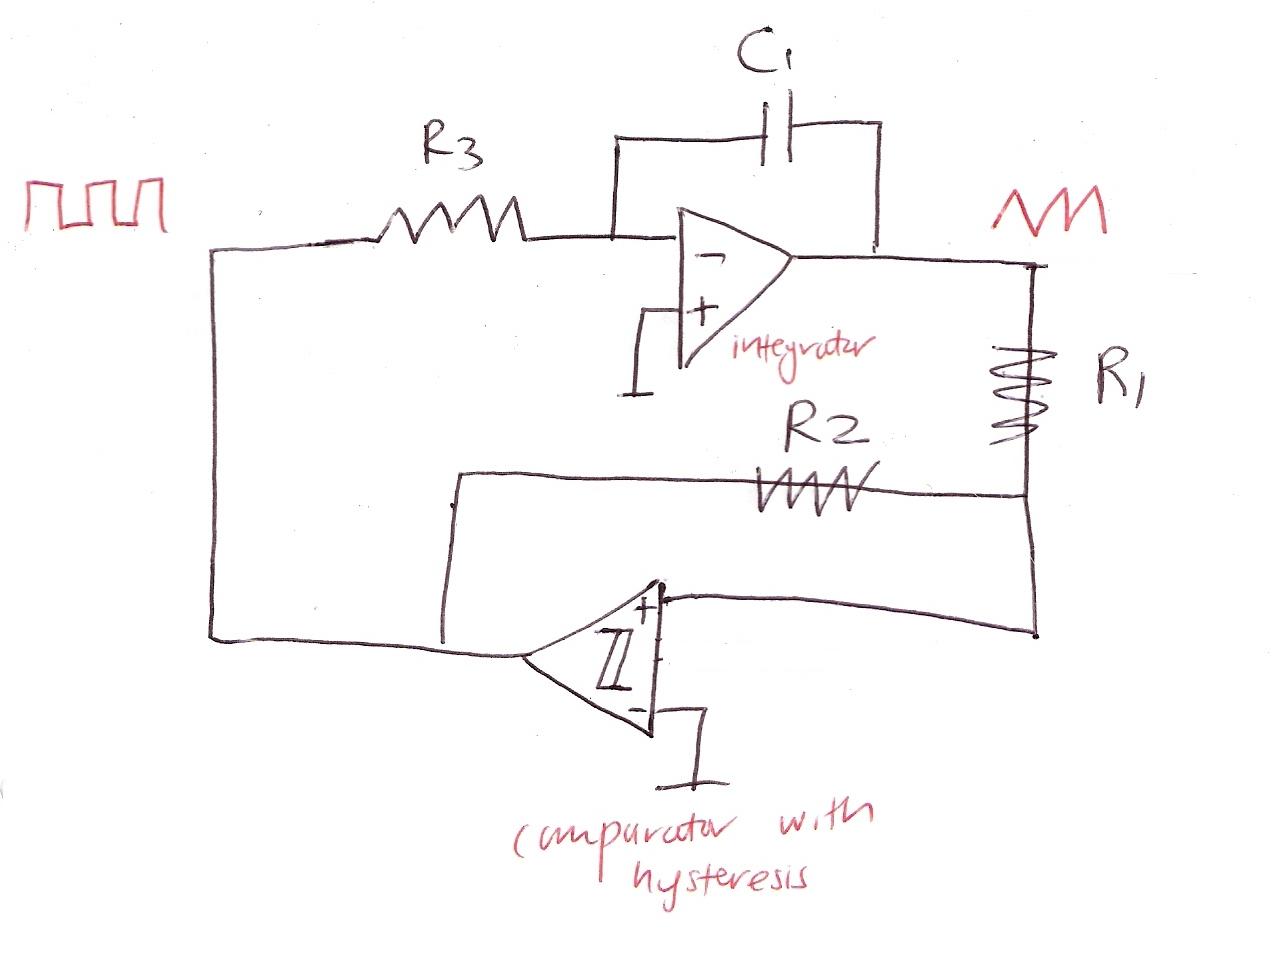 C1
R3
-
+
integrator
R1
R2
+
-
comparator with
hysteresis